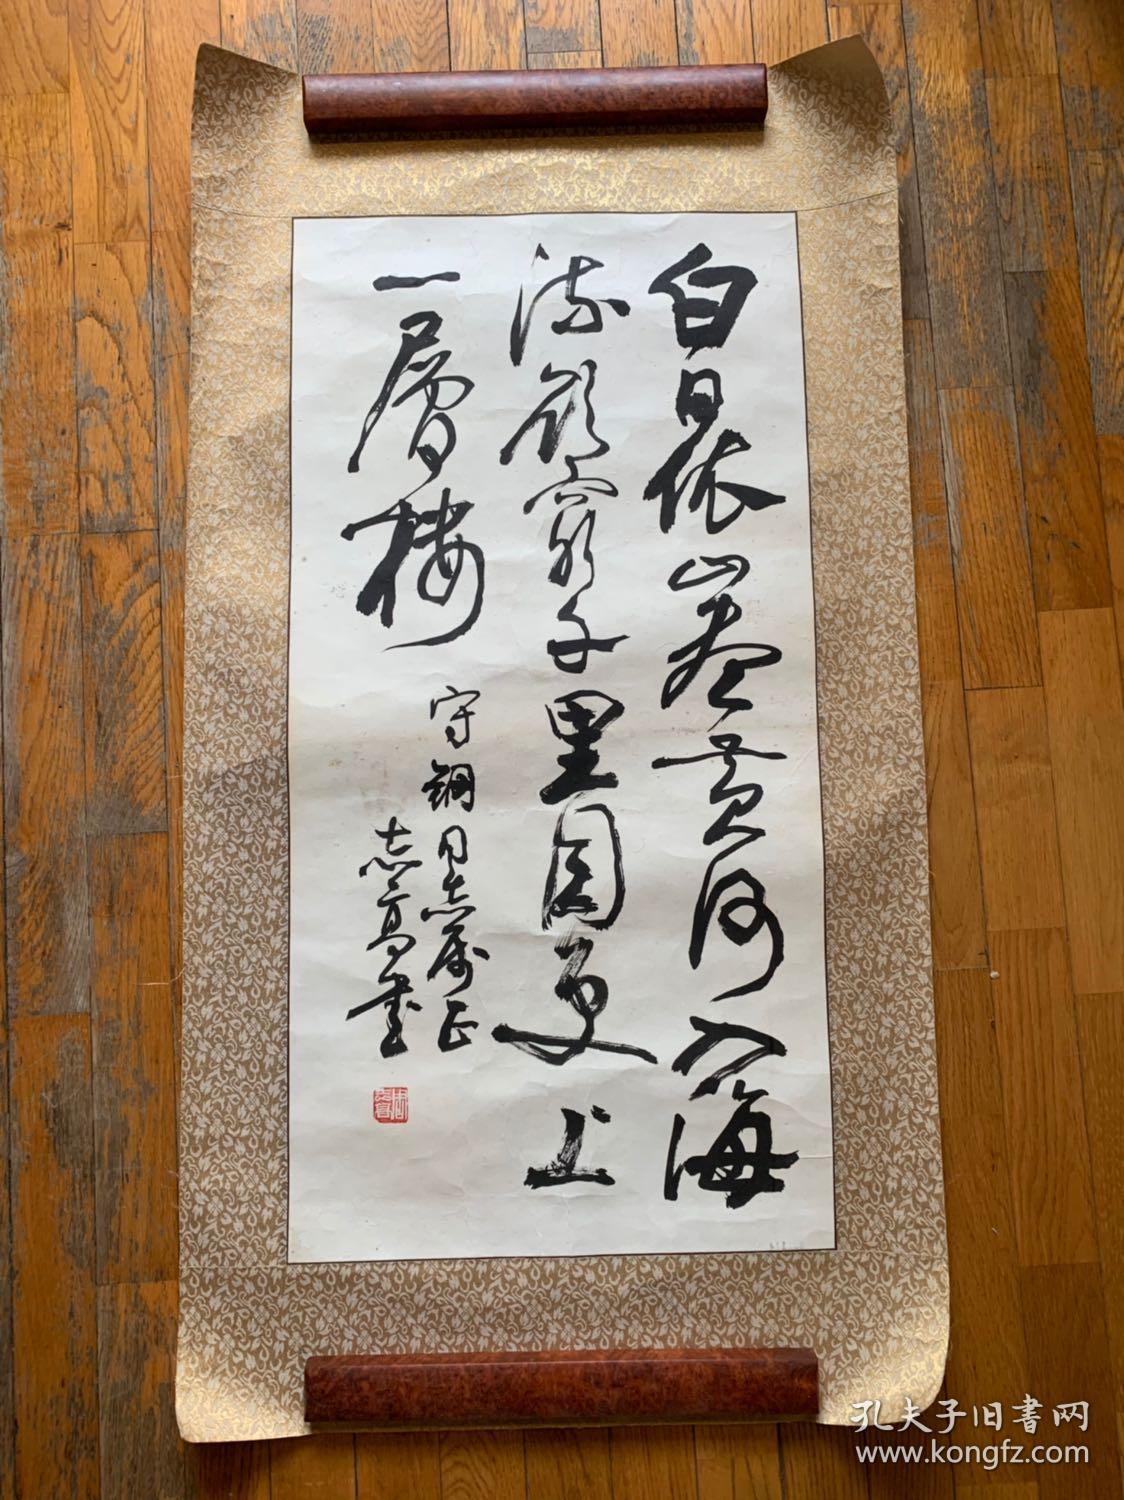 白日依山尽黄河入海
流欲穷千里目更上
一层楼
守钢同志属正
志高书
孔夫子旧書网
www.kongfz.com